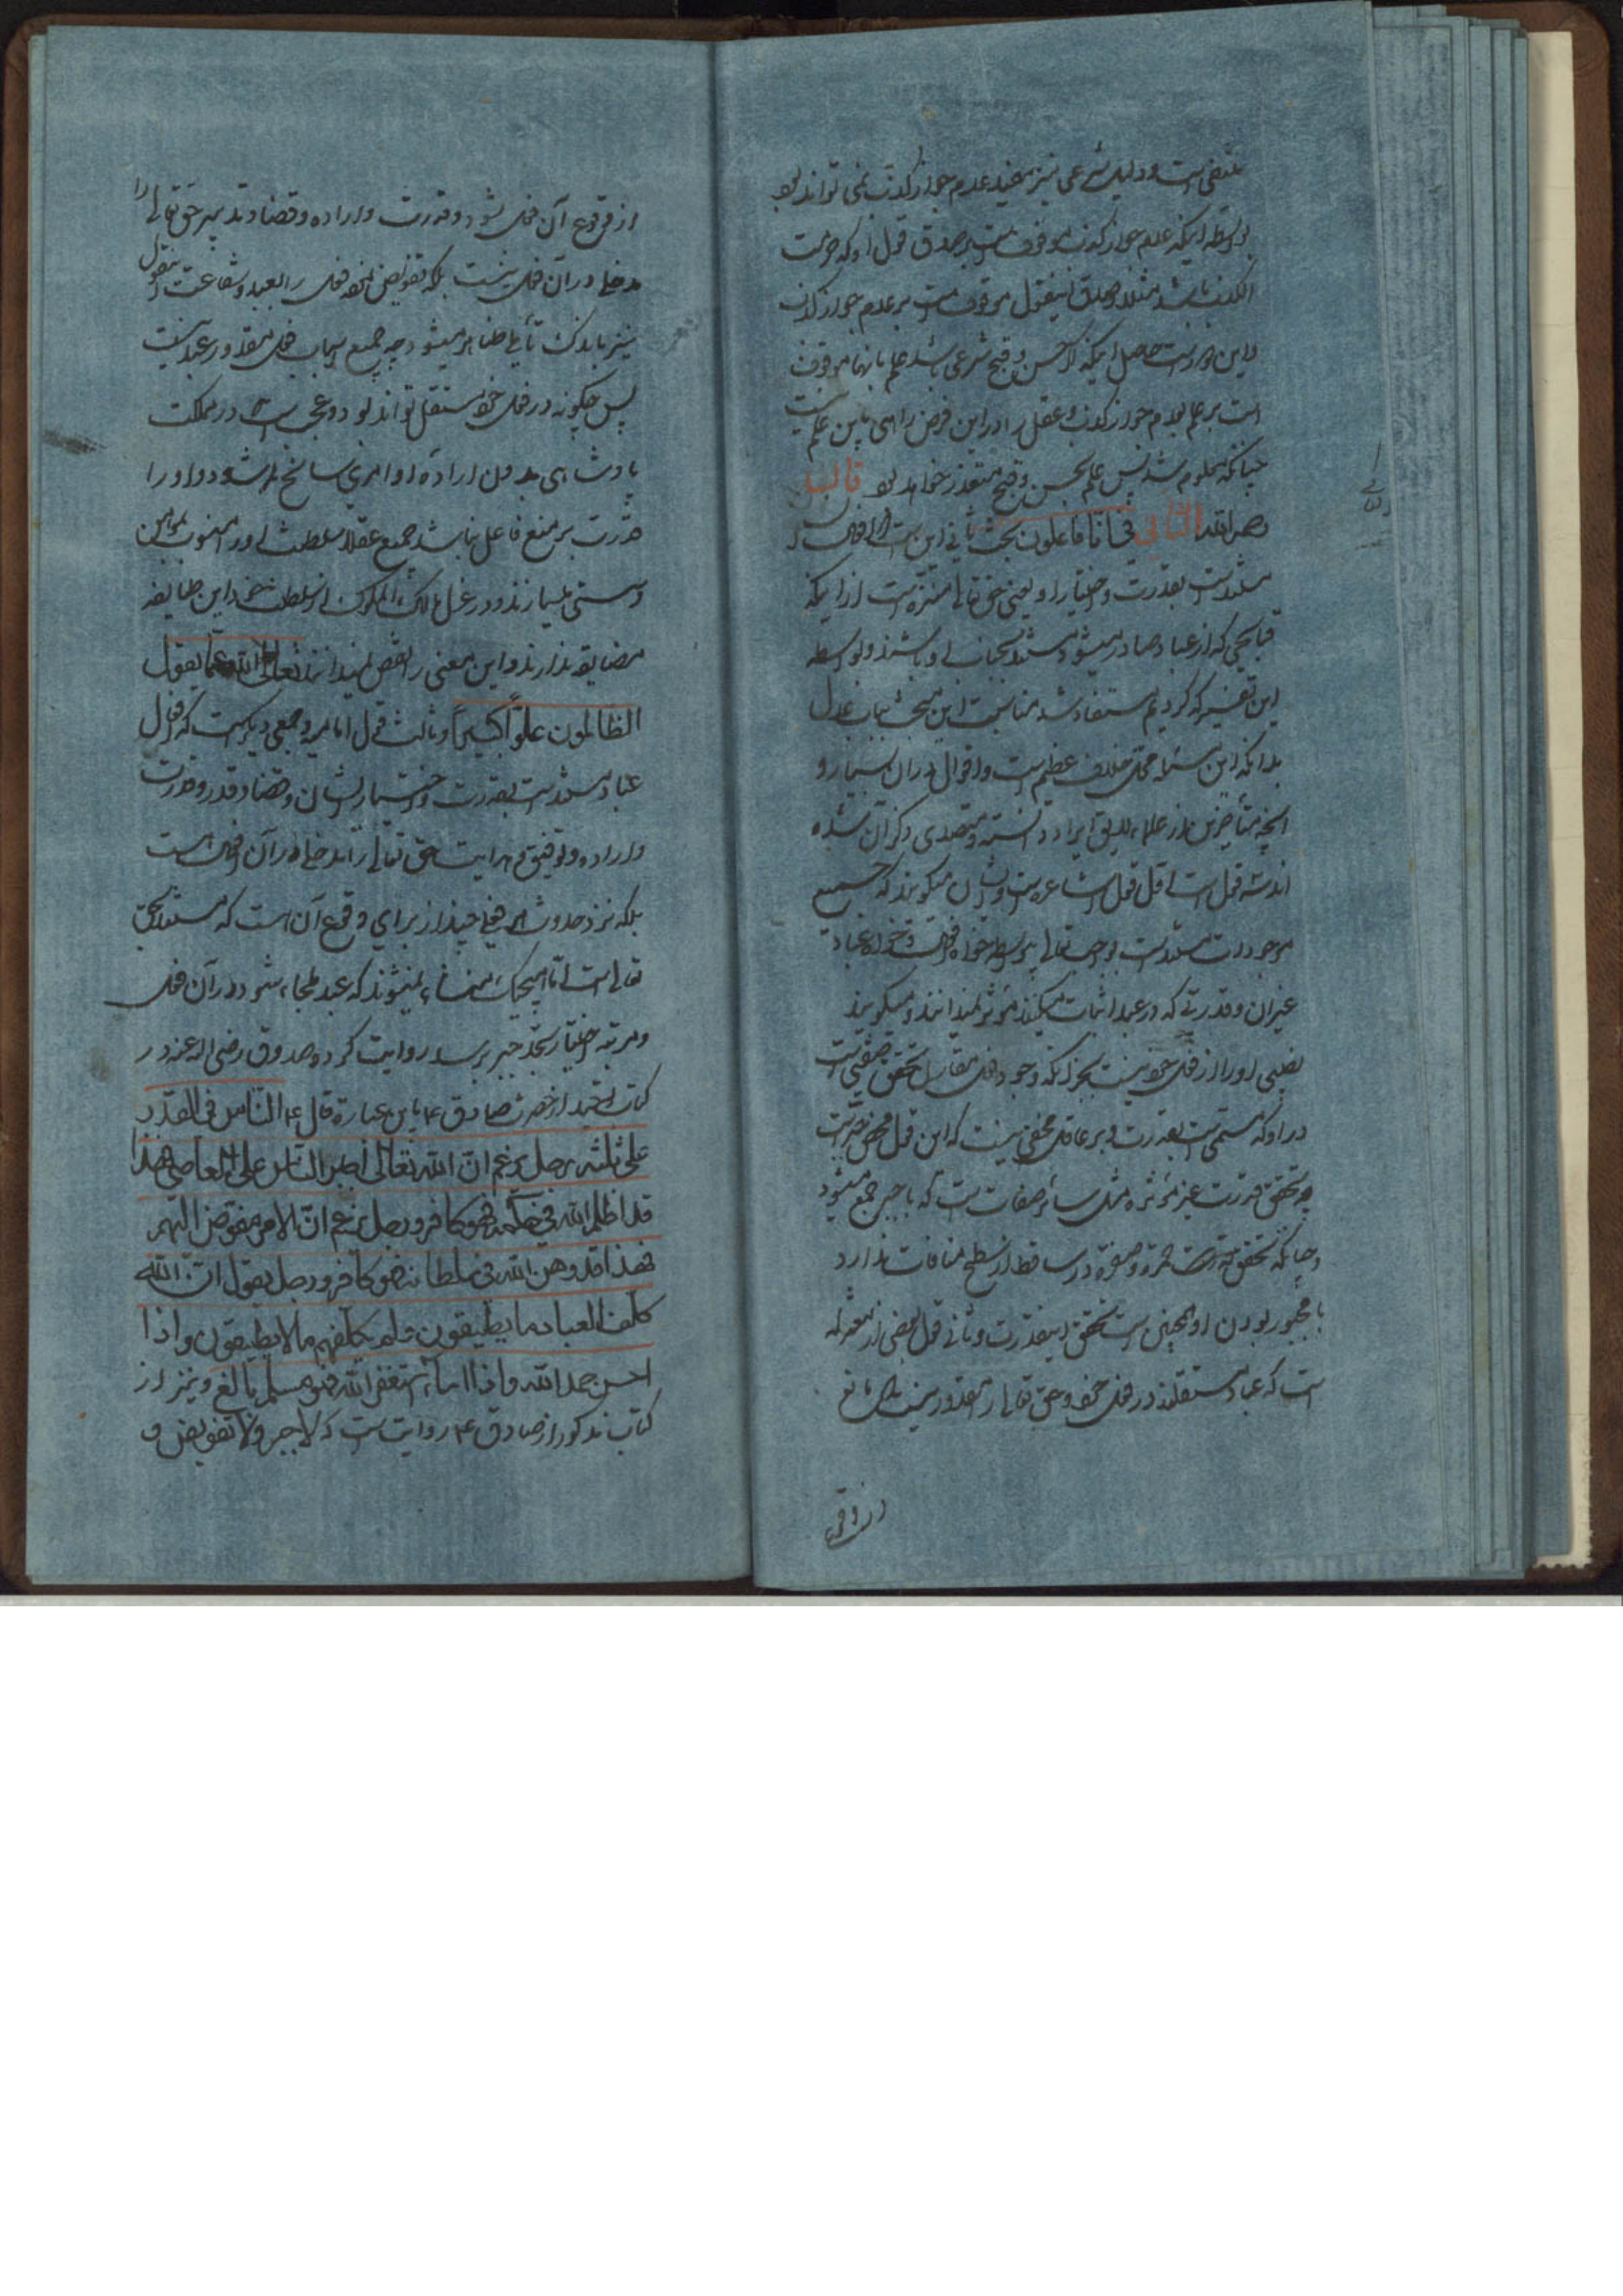 منتفی است و دلیل شرعی نیز مفید عدم جواز کذب نمی تواند بود
بواسطه اینکه عدم جواز کذب موقوف است بر صدق قول او که حرمت
الکذب باشد مثلا و صدق اینقول موقوف است بر عدم جواز کذب
و این دور است حاصل اینکه اگر حسن و قبح شرعی باشد علم بانها موقوف
است بر علم بعدم جواز کذب و عقل را در این فرض راهی باین علم نیست
چنانکه معلوم شد پس علم بحسن و قبح متعذر خواهد بود قال
رحمه الله الثانی فی انا فاعلون بحث ثانی این است که افعال
مستند است بقدرت و اختیار او یعنی حق تعالی منزه است از اینکه
قبایحی که از عباد صادر میشود مستند بجناب او باشند و بواسطه
این تفسیر که کردیم مستفاد شد مناسبت این مبحث بباب عدل
بدانکه این مسئله محل خلاف عظیم است و اقوال در آن بسیار و
آنچه متأخرین از علماء لایق ایراد دانسته و متصدی ذکر آن شده
اند سه قول است اول قول اشاعره است و ایشان میگویند که جمیع
موجودات مستند است بواجب تعالی بی واسطه خواه افعال و خواه عباد
غیر آن و قدرتی که در عبد اثبات میکنند مؤثر نمیدانند و میگویند
نصیبی او را از فعل خود نیست بجز آنکه وجود فعل مقارن تحقق صفتی است
در او که مسمی است بقدرت و بر عاقل مخفی نیست که این قول محض جبر است
چه تحقق قدرت غیر مؤثره مثل سائر صفات است که با جبر جمع میشود
و چنانکه تحقق حمرة و صفرة در ساقط از سطح منافات ندارد
با مجبور بودن او همچنین است تحقق اینقدرت و ثانی قول بعضی از معتزله
است که عباد مستقلند در فعل خود و حق تعالی را مقدور نیست که مانع
از وقوع
از وقوع آن فعل شود و قدرت و اراده و قضا و تدبیر حق تعالی را
مدخلی در آن فعل نیست بلکه تفویض نموده فعل را بعبد و شناعت اینقول
نیز باندک تأملی ظاهر میشود چه جمیع اسباب فعل مقدور عبد نیست
پس چگونه در فعل خود مستقل تواند بود و عجب است در مملکت
پادشاهی بدون اراده او امری سانح شود و او را
قدرت بر منع فاعل نباشد جمیع عقلا سلطنت او را منسوب بوهن
و سستی میشمارند و در عزل مالک الملوک از سلطنت خود این طایفه
مضایقه ندارند و این معنی را نقص نمیدانند تعالی الله عما یقول
الظالمون علوا کبیرا و ثالث قول امامیه و جمعی دیگر است که افعال
عباد مستند است بقدرت و اختیار ایشان و قضا و قدر و قدرت
و اراده و توفیق و هدایت حق تعالی را مدخلی در آن افعال هست
بلکه نزد حدوث هر فعلی چیز از برای وقوع آن است که مستند بحق
تعالی است اما هیچیک منشاء نمیشوند که عبد ملجاء شود در آن فعل
و مرتبه اختیار بحد جبر برسد روایت کرده صدوق رضی الله عنه در
کتاب توحید از حضرت صادق ع باین عبارة قال ع الناس فی القدر
علی ثلثه رجل یزعم ان الله تعالی اجبر الناس علی المعاصی فهذا
قد اظلم الله فی حکمه فهو کافر و رجل یزعم ان الامر مفوض الیهم
فهذا قد وهن الله فی سلطانه فهو کافر و رجل یقول ان الله
کلف العباد ما یطیقون و لم یکلفهم ما لا یطیقون و اذا
احسن حمد الله و اذا اساء استغفر الله فهو مسلم بالغ و نیز از
کتاب مذکور از صادق ع روایت است که لا جبر و لا تفویض و